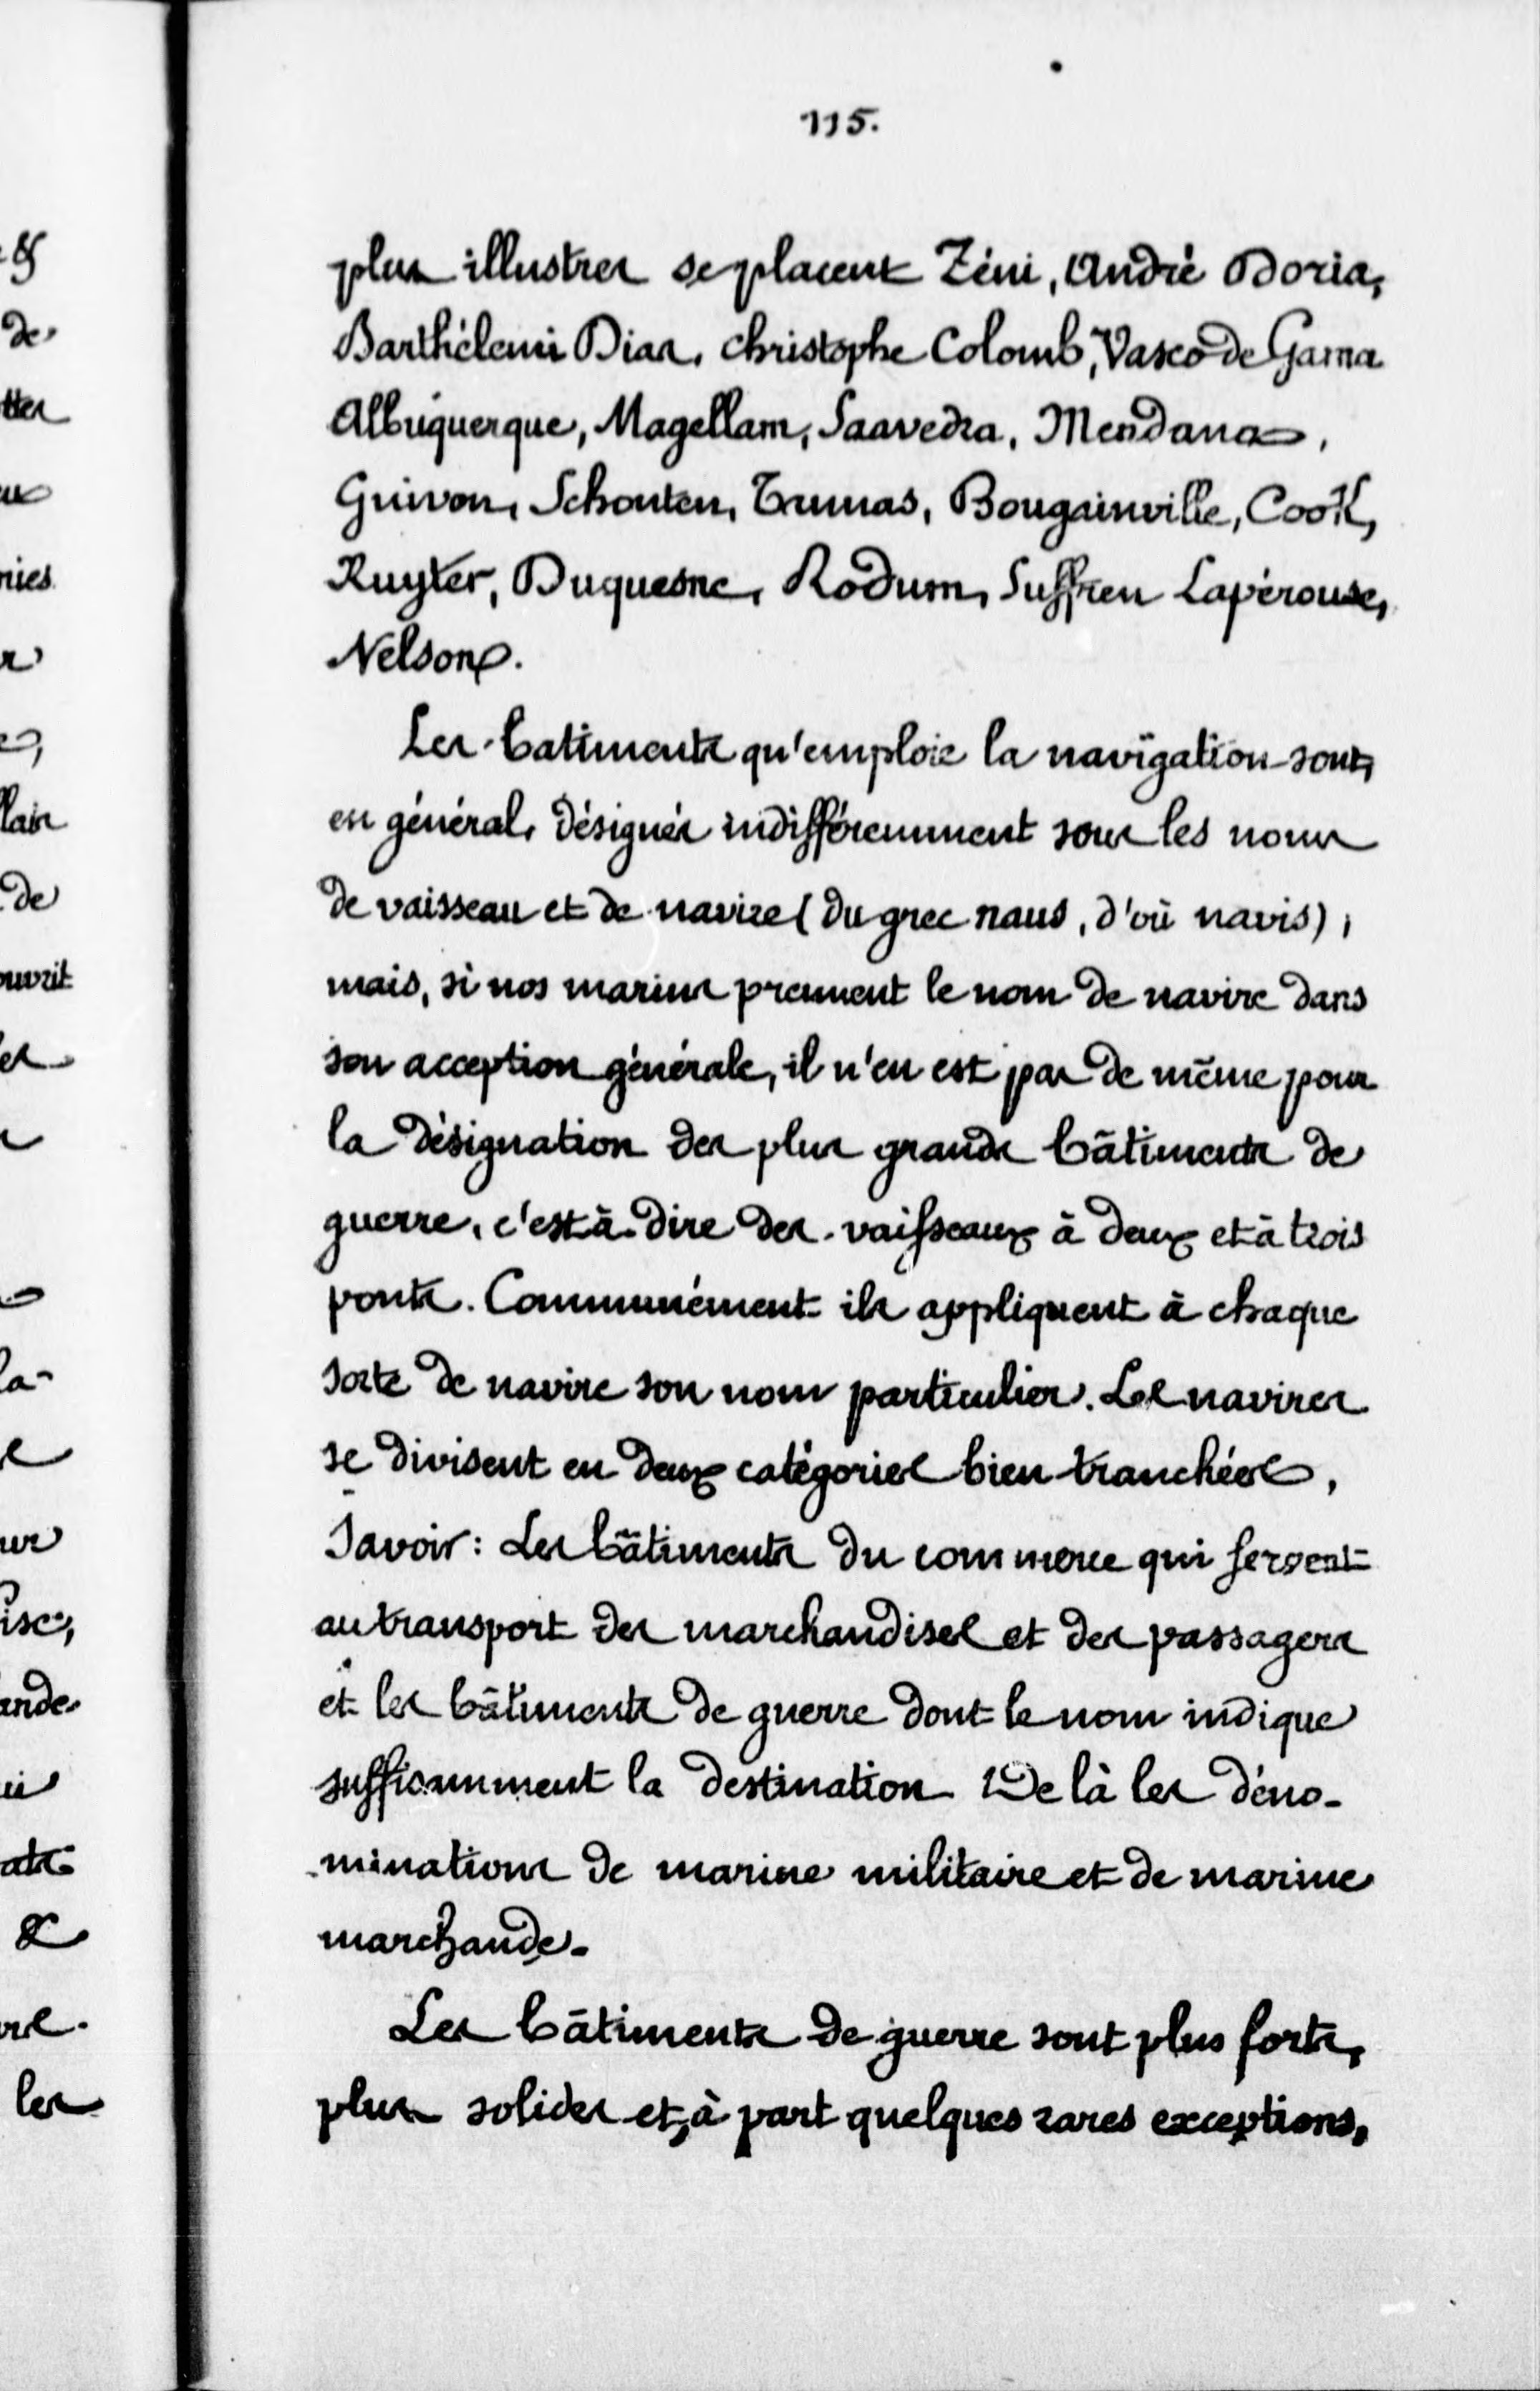 115.
plus illustres se placent Zéni, André Doria,
Barthélemi Dias, christophe Colomb, Vasco de Gama
Albuquerque, Magellam, Saavedra, Mendana,
Grivon, Schouten, Bougainville, Cook,
Ruyter, Duquesne, Rodum, Suffren Lapérouse,
Nelson.
Les batiments qu'emploie la navigation sont,
en général, désignés indifféremment sous les noms
de vaisseau et de navire (du grec naus, d'où navis),
mais, si nos marins prennent le nom de navire dans
son acception générale, il n'en est pas de même pour
la désignation des plus grands bâtiments de
guerre, c'est à dire des vaisseaux à deux et à trois
ponts. Communément ils appliquent à chaque
sorte de navire son nom particulier. Les navires
se divisent en deux catégories bien tranchées,
Savoir: Les bâtiments du commerce qui servent
au transport des marchandises et des passagers
et les bâtiments de guerre dont le nom indique
suffisamment la destination De là les déno-
-minations de marine militaire et de marine
marchande.
Les bâtiments de guerre sont plus forts,
plus solides et, à part quelques rares exceptions,
de
ouvrit
de
les